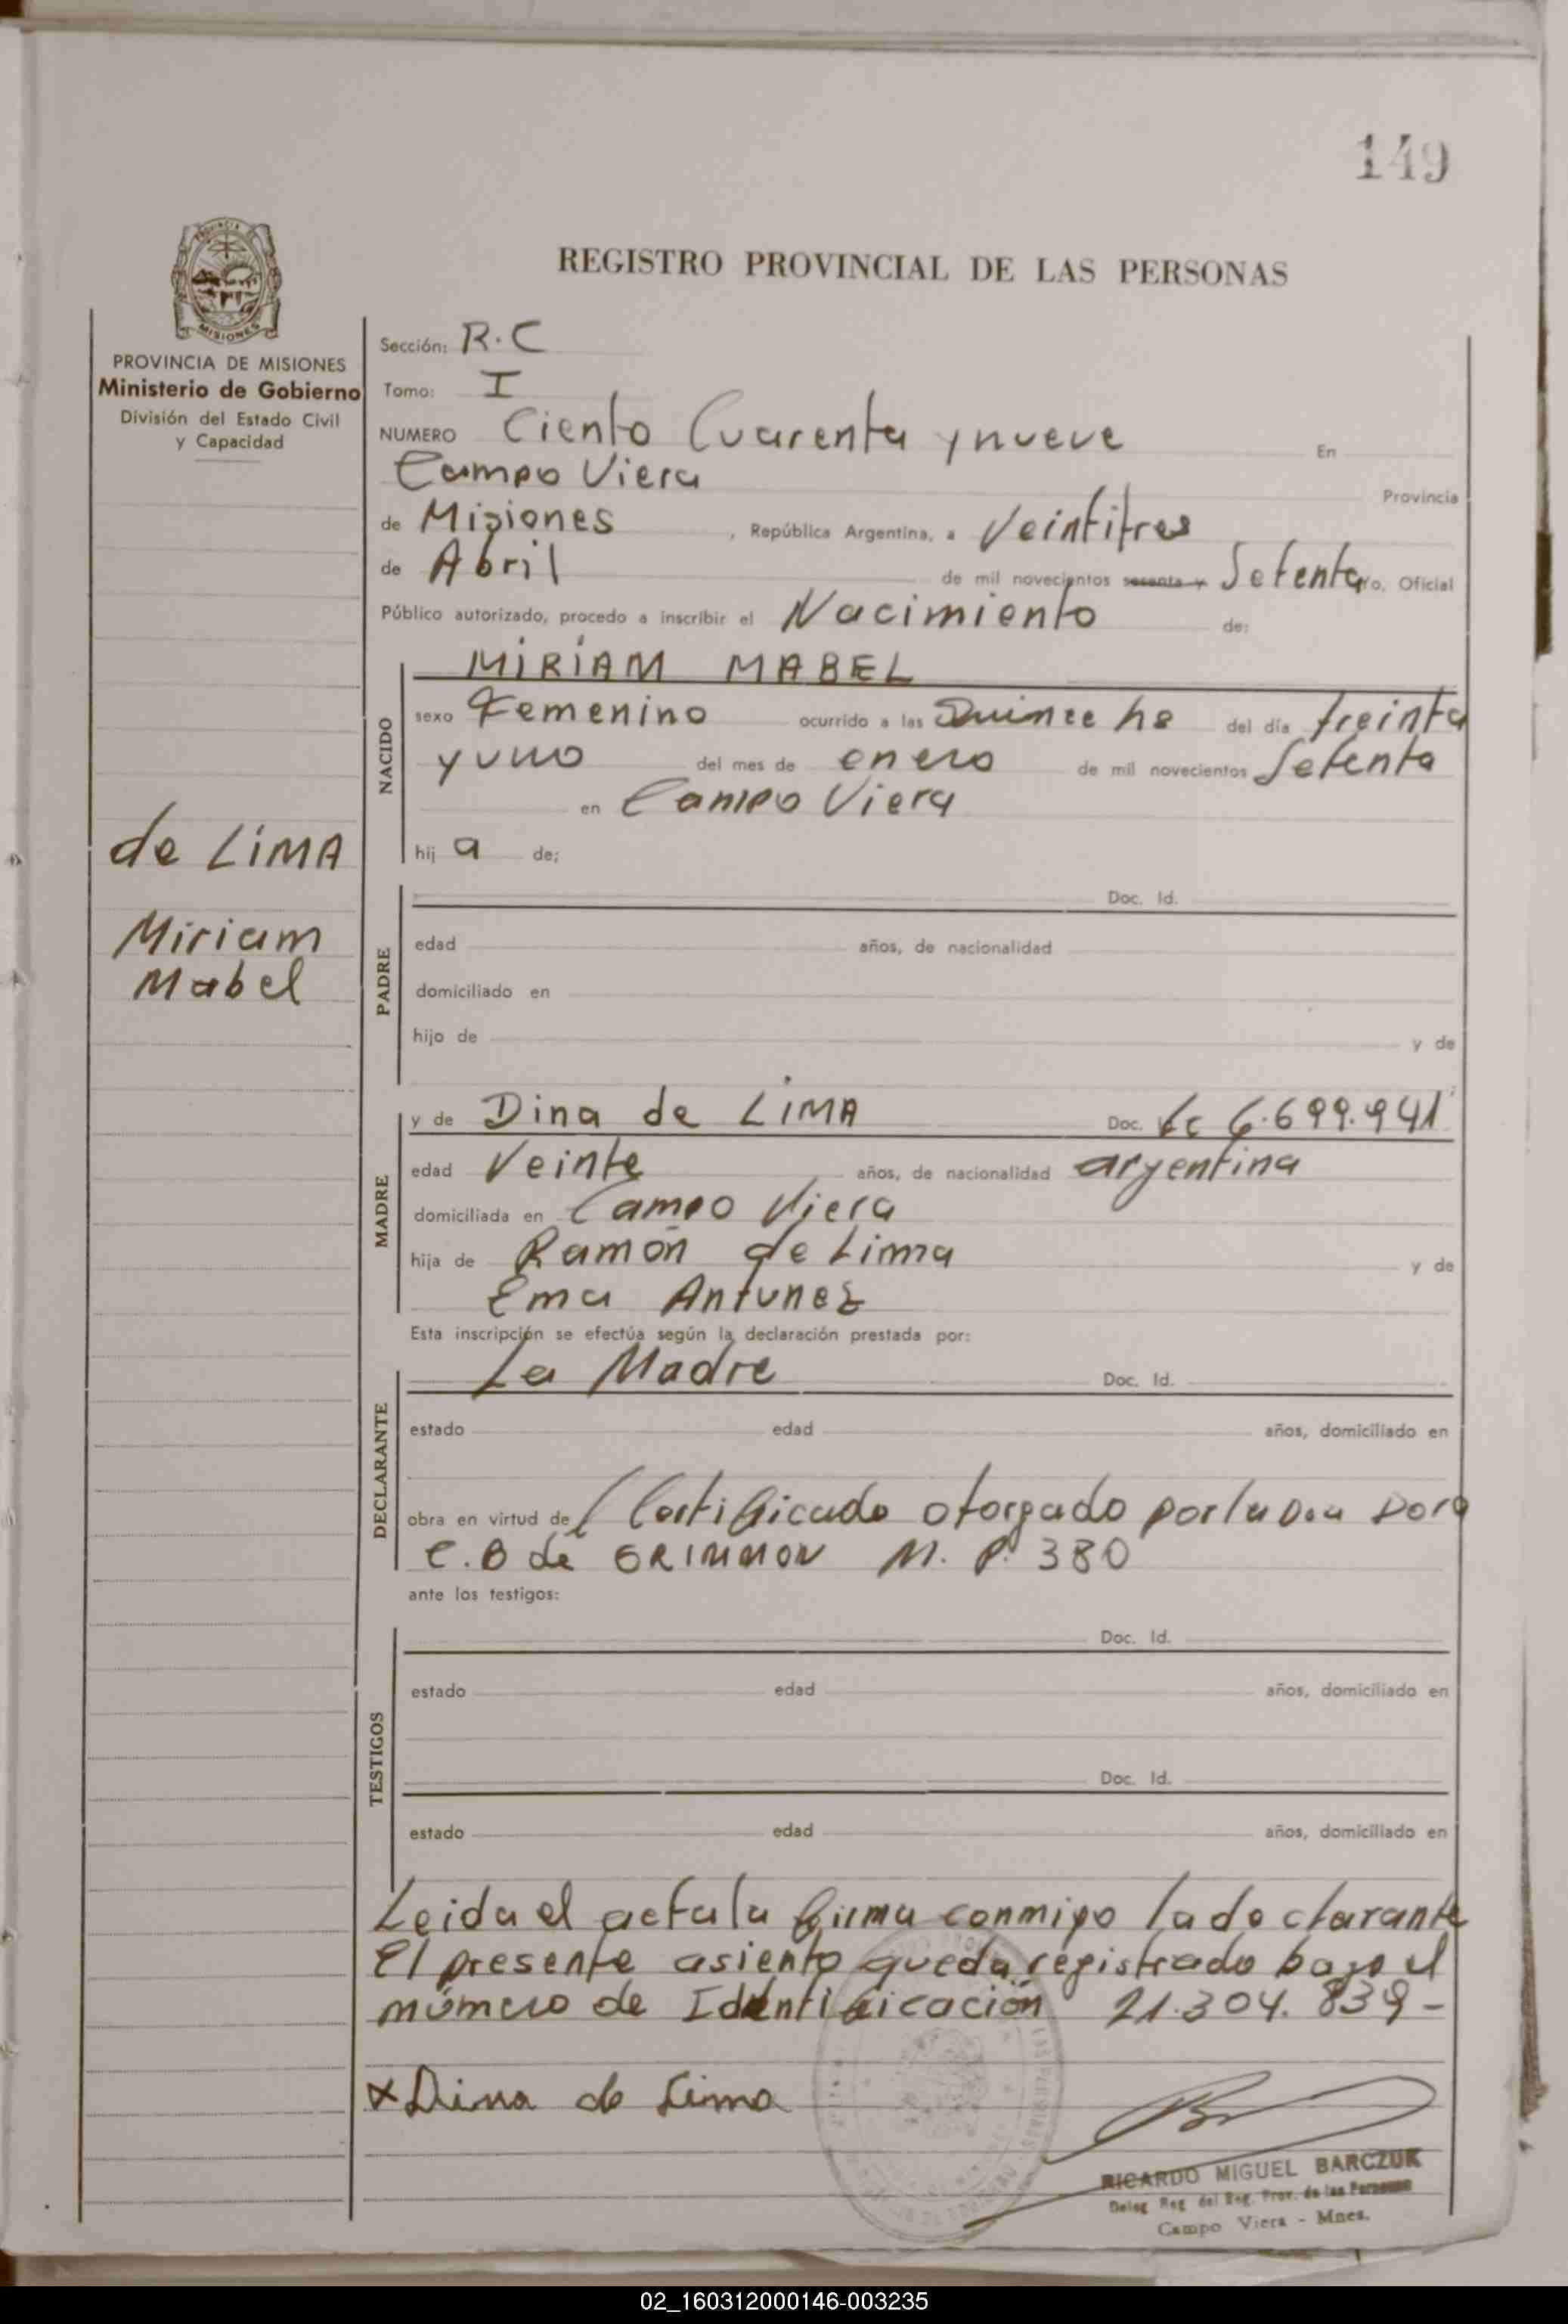 149
REGISTRO PROVINCIAL DE LAS PERSONAS
PROVINCIA DE MISIONES
Ministerio de Gobierno
División del Estado Civil
y Capacidad
de LiMA
Miriam
Mabel
Sección: R.C
Tomo: I
NUMERO Ciento Cuarenta y nueve En
Campo Viera Provincia
de Misiones, República Argentina, a Veintitres
de Abril de mil novecientos sesenta y Setenta yo, Oficial
Público autorizado, procedo a inscribir el Nacimiento de:
NACIDO
MiRiAM MABEL
sexo Femenino ocurrido a las Quince hs del día treinta
y uno del mes de enero de mil novecientos Setenta
en Campo Viera
hij a de;
PADRE
Doc. Id.
edad años, de nacionalidad
domiciliado en
hijo de y de
MADRE
y de Dina de LiMA Doc. Lc 6.699.941
edad Veinte años, de nacionalidad argentina
domiciliada en Campo Viera
hija de Ramón de Lima y de
Ema Antunez
Esta inscripción se efectúa según la declaración prestada por:
DECLARANTE
La Madre Doc. Id.
estado edad años, domiciliado en
obra en virtud de Certificado otorgado por la Dra Dora
C.B de GRIMMON M. P. 380
ante los testigos:
TESTIGOS
Doc. Id.
estado edad años, domiciliado en
Doc. Id.
estado edad años, domiciliado en
Leida el acta la firma conmigo la declarante
El presente asiento queda registrado bajo el
número de Identificación 21.304.839-
x Dina de Lima
RICARDO MIGUEL BARCZUK
Deleg Reg del Reg. Prov. de las Personas
Campo Viera - Mnes.
02_160312000146-003235